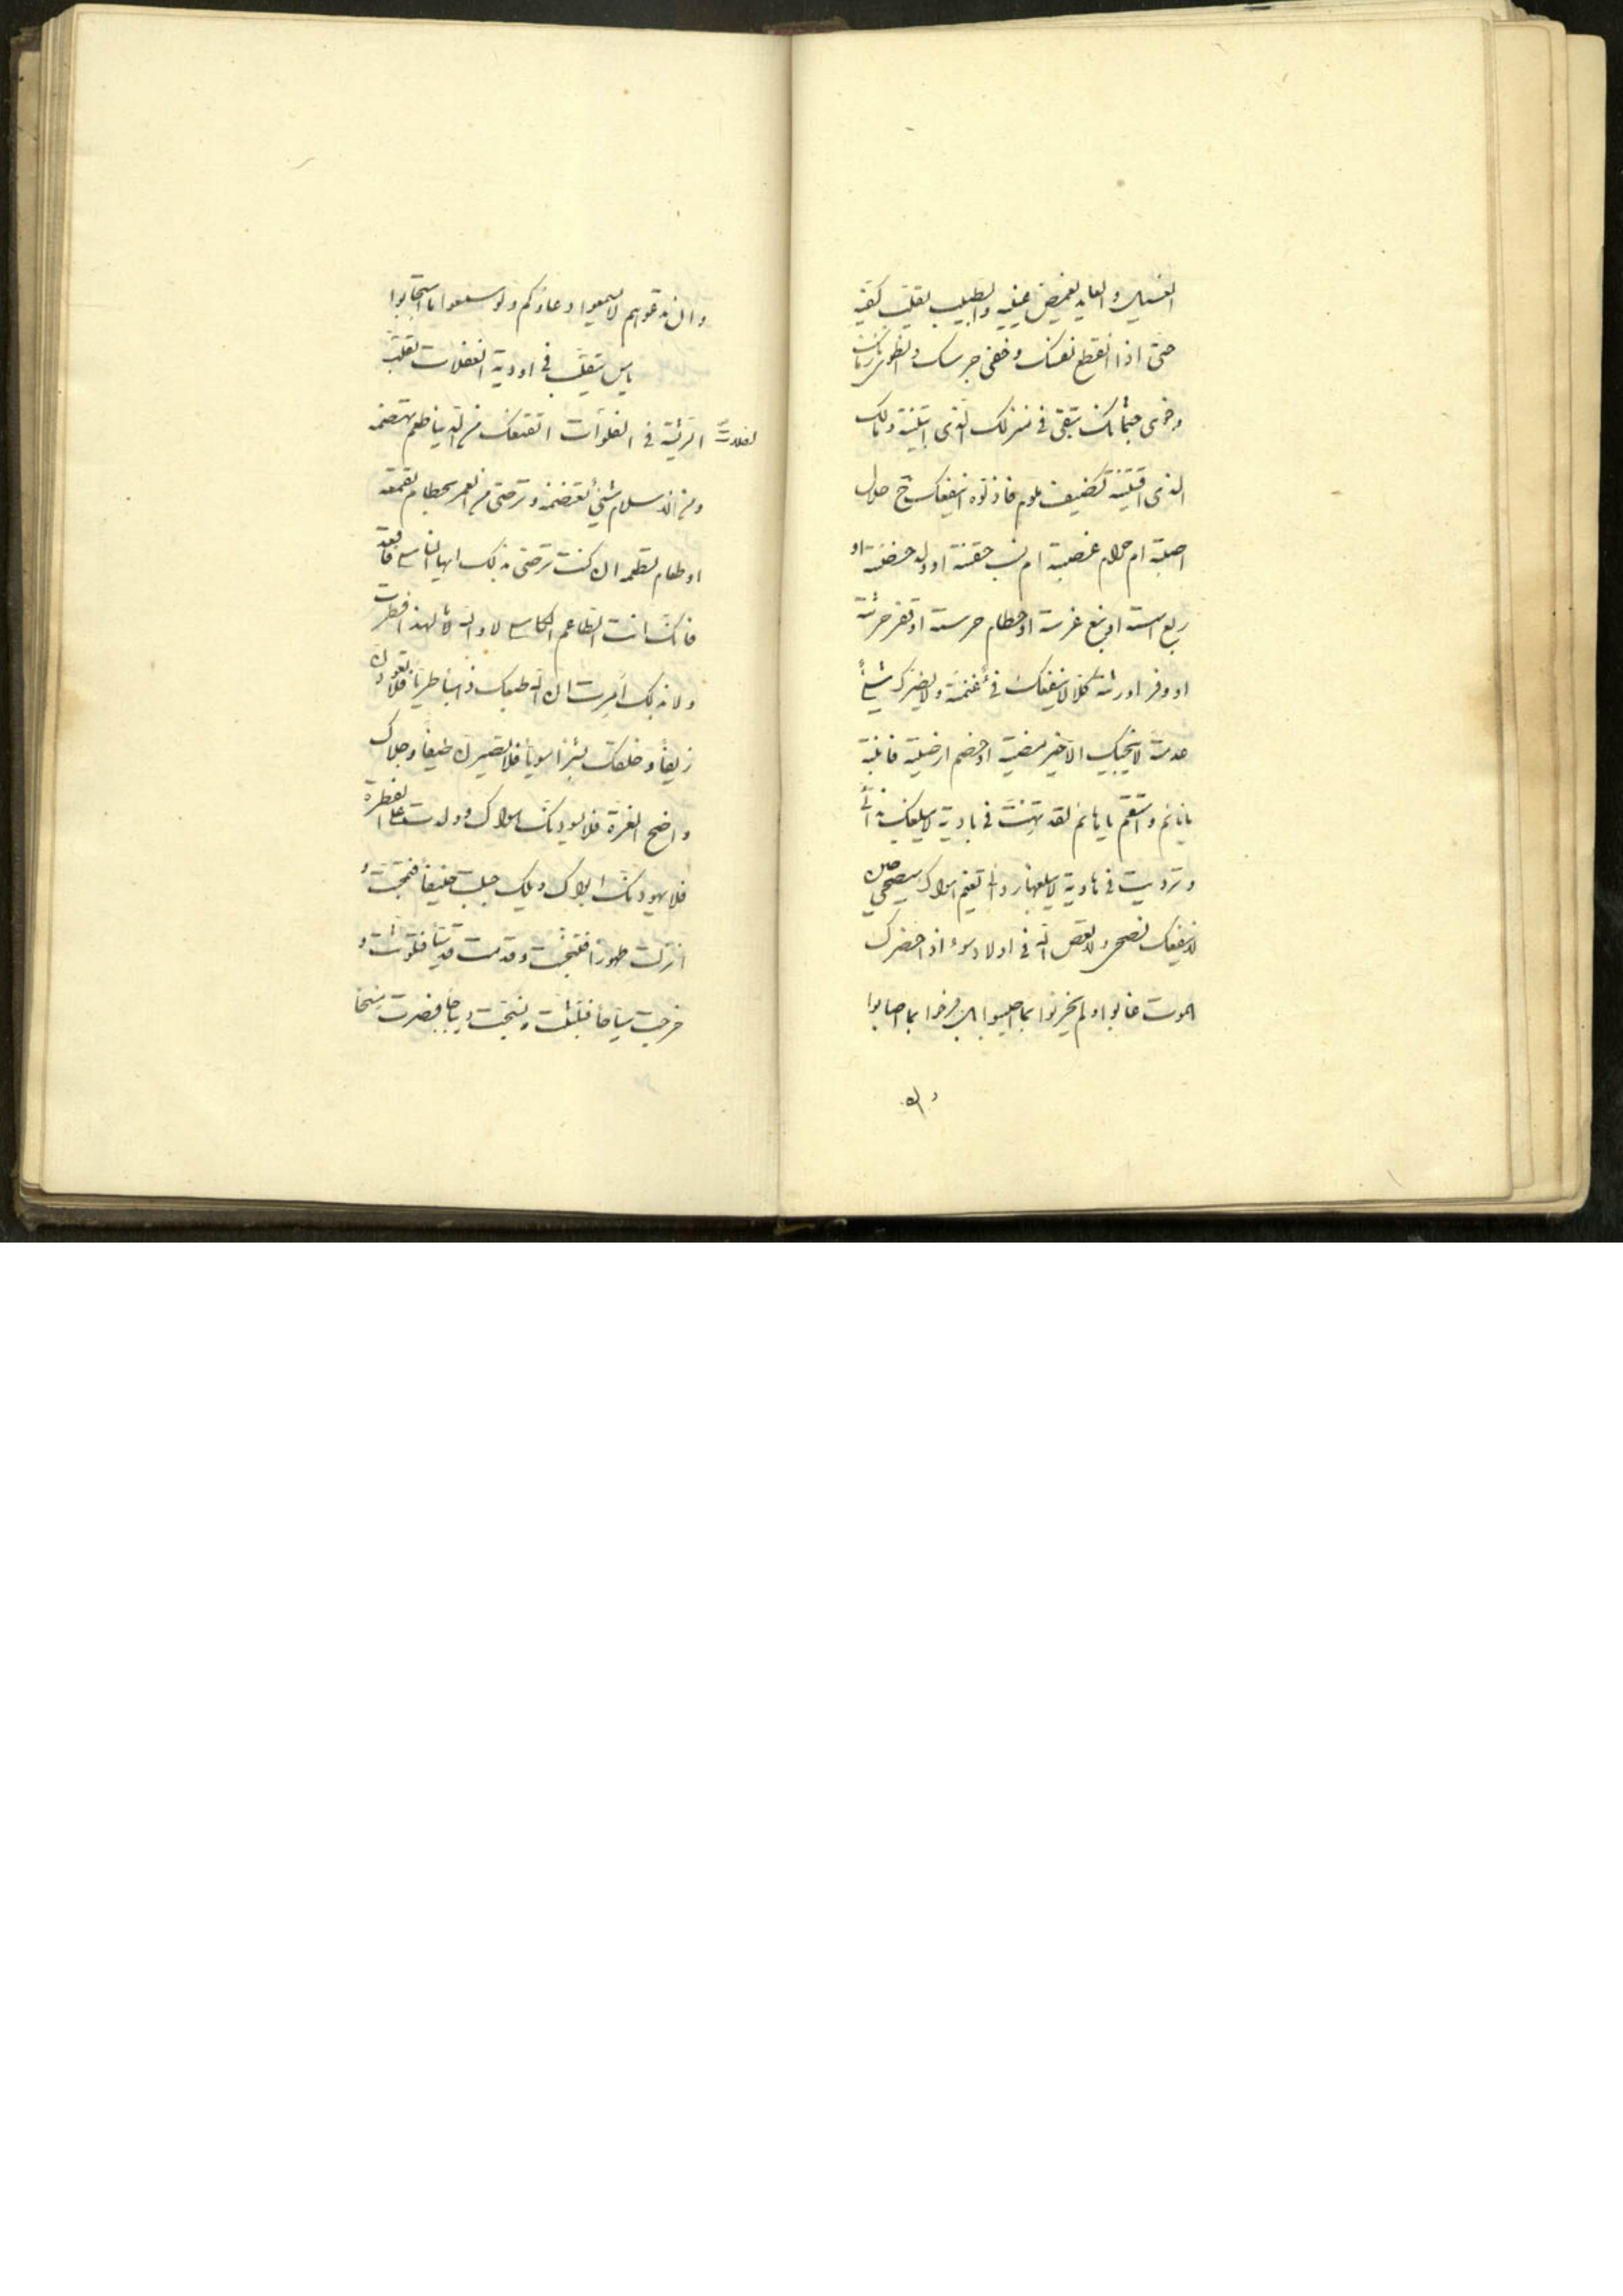 الغسيل والعايد يغمض عينيه والطبيب يقلب كفيه
حتى اذا انقطع نفسك وخفى جرسك وانطوى زمانك
وخوى جثمانك تبقى فى منزلك الذى ابتنيته ومالك
الذى اقتنيته كضيف ملوم فاذ لوه اينفعك ح حلال
اصبته ام حرام غصبته ام نسب حققته او ولد حضنته او
ربع اسسته او نبع غرسته او حطام حرسته او قفر حرثته
او وفر اورثته كلا لا ينفعك غنمته ولا يضرك شيئا
عدمته لا ينجيك الا خير امضيته او خصم ارضيته فانتبه
يا نايم واستقم يا هايم لقد تهت فى بادية لا يبلغك
وترديت فى هاوية لا يبلغها ردانى تغنم اولادك
لا ينفعك نصحى ولا بعض فى اولاد سوء اذا حضرك
الموت غابوا ولم يحزنوا بما اصيبوا بل فرحوا بما اصابوا
وان
وان تدعوهم لا يسمعوا دعاؤكم ولو سمعوا ما استجابوا
يا من يتقلب فى اودية الغفلات تقلب
الريشة فى الفلوات اتقنعك من الدنيا طعم تهضمه
ومن الاسلام شئ تقضمه وترضى من العمر بحطام تقممه
او طعام تطعمه ان كنت ترضى بذلك ايها الناسى فاقعد
فانك انت الطاعم الكاسى لا والله لا لهذا فطرت
ولا بذلك أمرت ان الله طبعك ذهبا طريا فلا تعودن
زيفا وخلقك بشرا سويا فلا تصيرن طيفا وجلاك
واضح الغرة فلا يسودنك اهواؤك وولدت على الفطرة
فلا يهودنك ابواك ويلك جبلت حنيفا فتمجست و
انزلت طهورا فتنجست وقدمت قديسا فتلوثت و
خرجت سياحا فتلبثت ونتجت رياحا فصرت سنخا